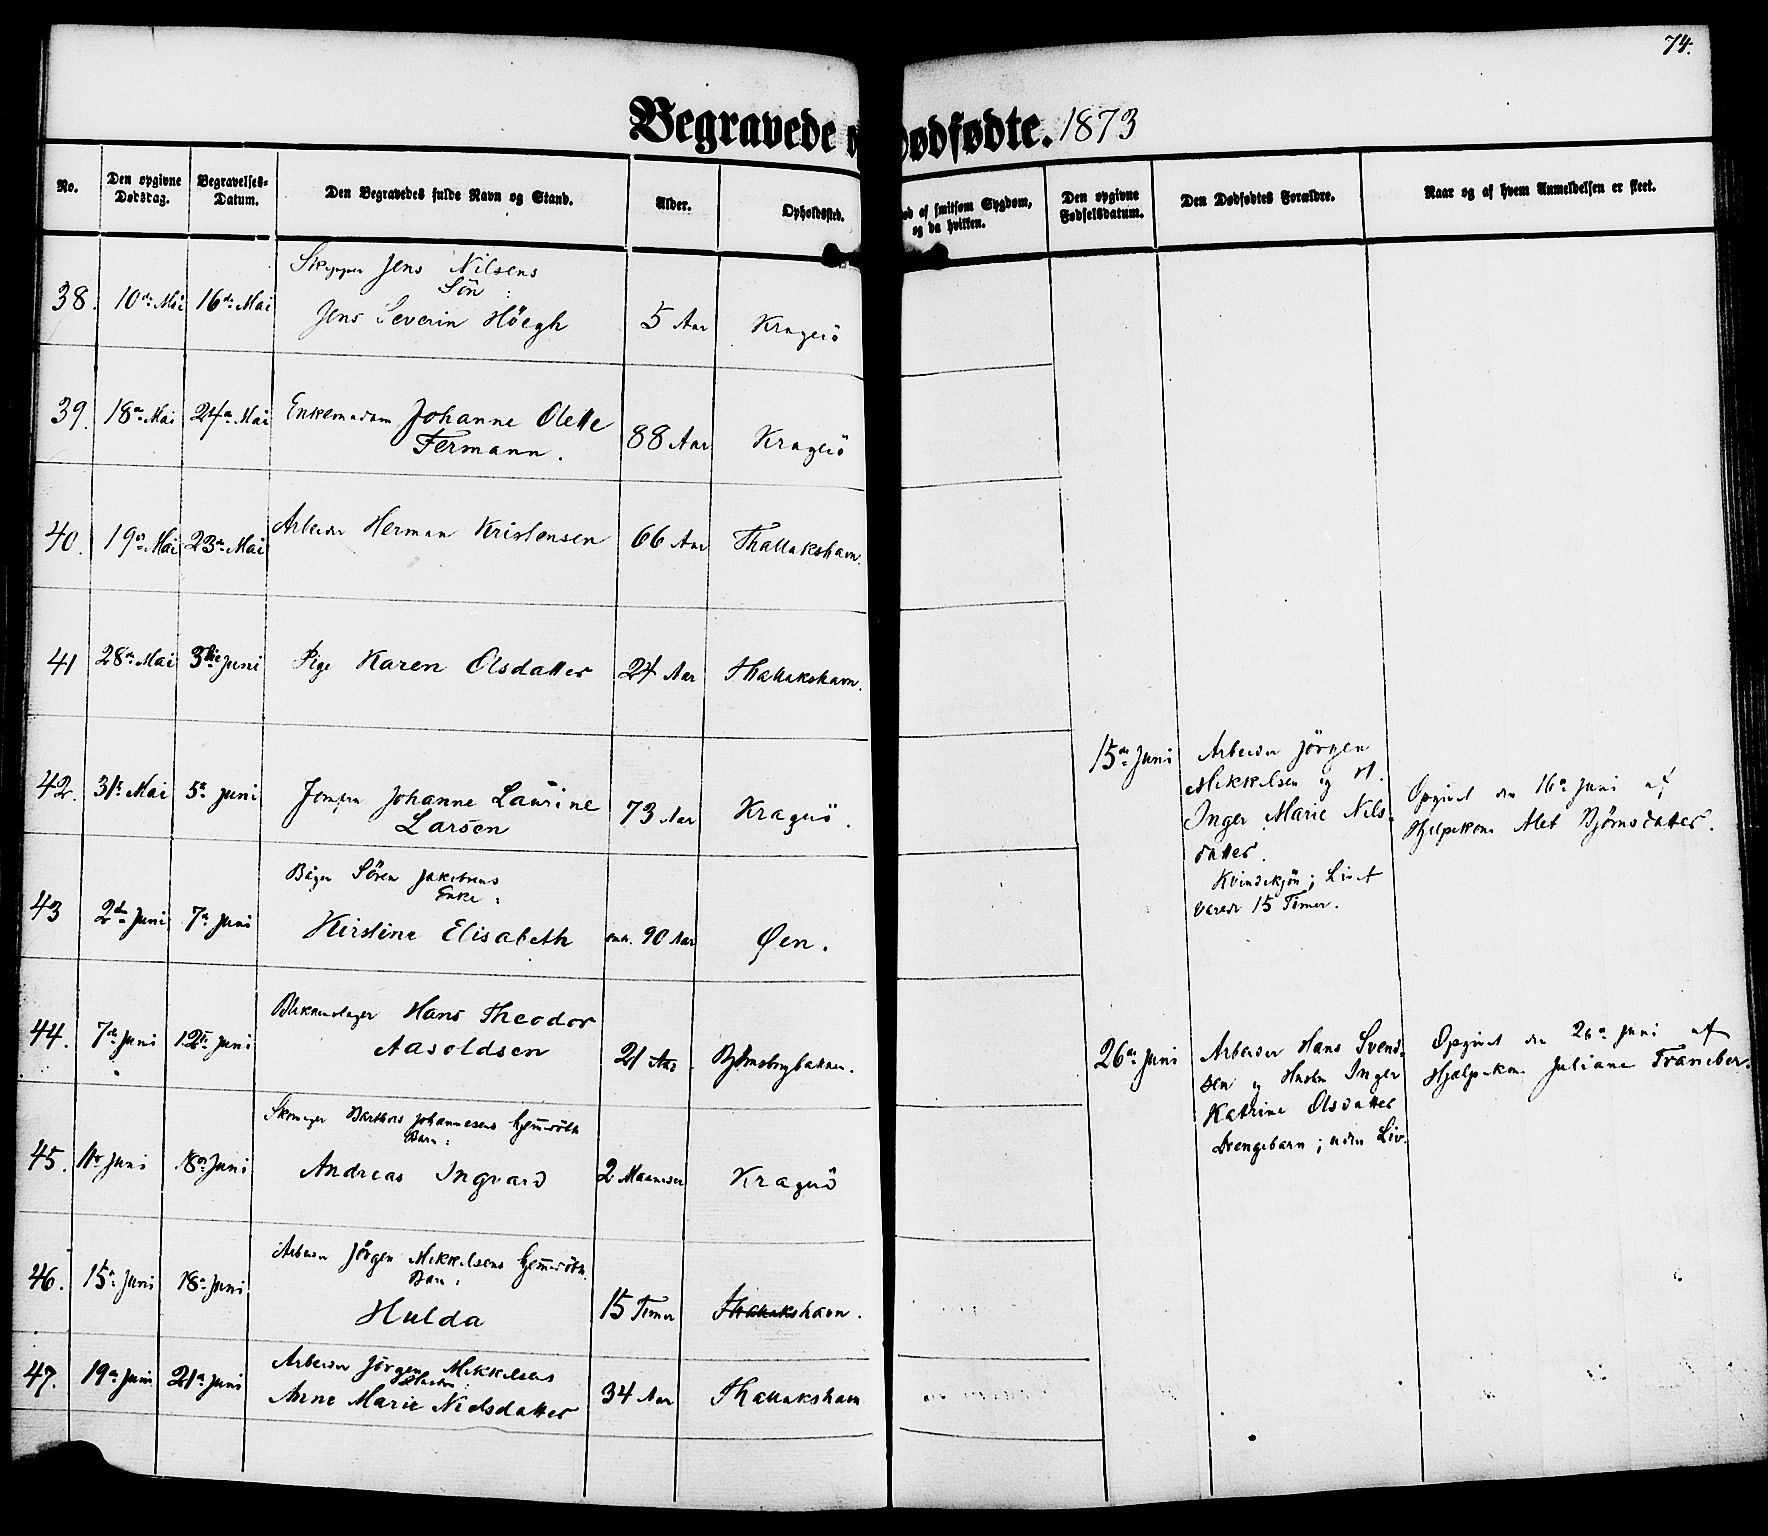 74.
Begravede dødfødte. 1873
No.
Den opgivne Dødsdag.
Begravelses-Datum.
Den Begravedes fulde Navn og Stand.
Alder.
Opholdssted.
af smitsom Sygdom, og da hvilken.
Den opgivne Fødselsdatum.
Den Dødfødtes Forældre.
Naar og af hvem Anmeldelsen er skeet.
Skipper Jens Nilsens
Sön :
38. 10de Mai 16de Mai Jens Severin Höegh 5 Aar Kragerö
39. 18de Mai 24de Mai Enkemadam Johanne Olette
Fermann. 88 Aar Kragerö
40. 19de Mai 23de Mai Arbeider Herman Kristensen 66 Aar Thallakshavn.
41 28de Mai 3die Juni Pige Karen Olsdatter 24 Aar Thallakshavn.
42. 31te Mai 5te Juni Jomfru Johanne Laurine
Larsen 73 Aar Kragerö.
Sören Jakobsens
Enke :
43 2den Juni 7de Juni Kirstine Elisabeth omtr. 90 Aar Øen.
44. 7de Juni 12te Juni Blikkenslager Hans Theodor
Aasoldsen 21 Aar
Skomager Barthos Johannesens
Barn :
45. 11te Juni 18de Juni Andreas Ingvard 2 Maaneder Kragerö
Arbeider Jörgen Mikkelsens
Barn :
46. 15de Juni 18de Juni Hulda 15 Timer Thallakshavn.
Arbeider Jörgen Mikkelsens
Hustru
47. 19de Juni 21de Juni Anne Marie Nielsdatter 34 Aar Thallakshavn
15de Juni
Arbeider Jörgen
Mikkelsen og H.
Inger Marie Nils-
datter.
Kvindekjön; Livet
varede 15 Timer.
Opgivet den 16de Juni af
Hjelpekone Alet Bjørnsdatter.
26de Juni
Arbeider Hans Svend-
sen og Hustru Inger
Katrine Olsdatter
Drengebarn; uden Liv.
Opgivet den 26de Juni af
Hjælpekone Juliane Traneber.